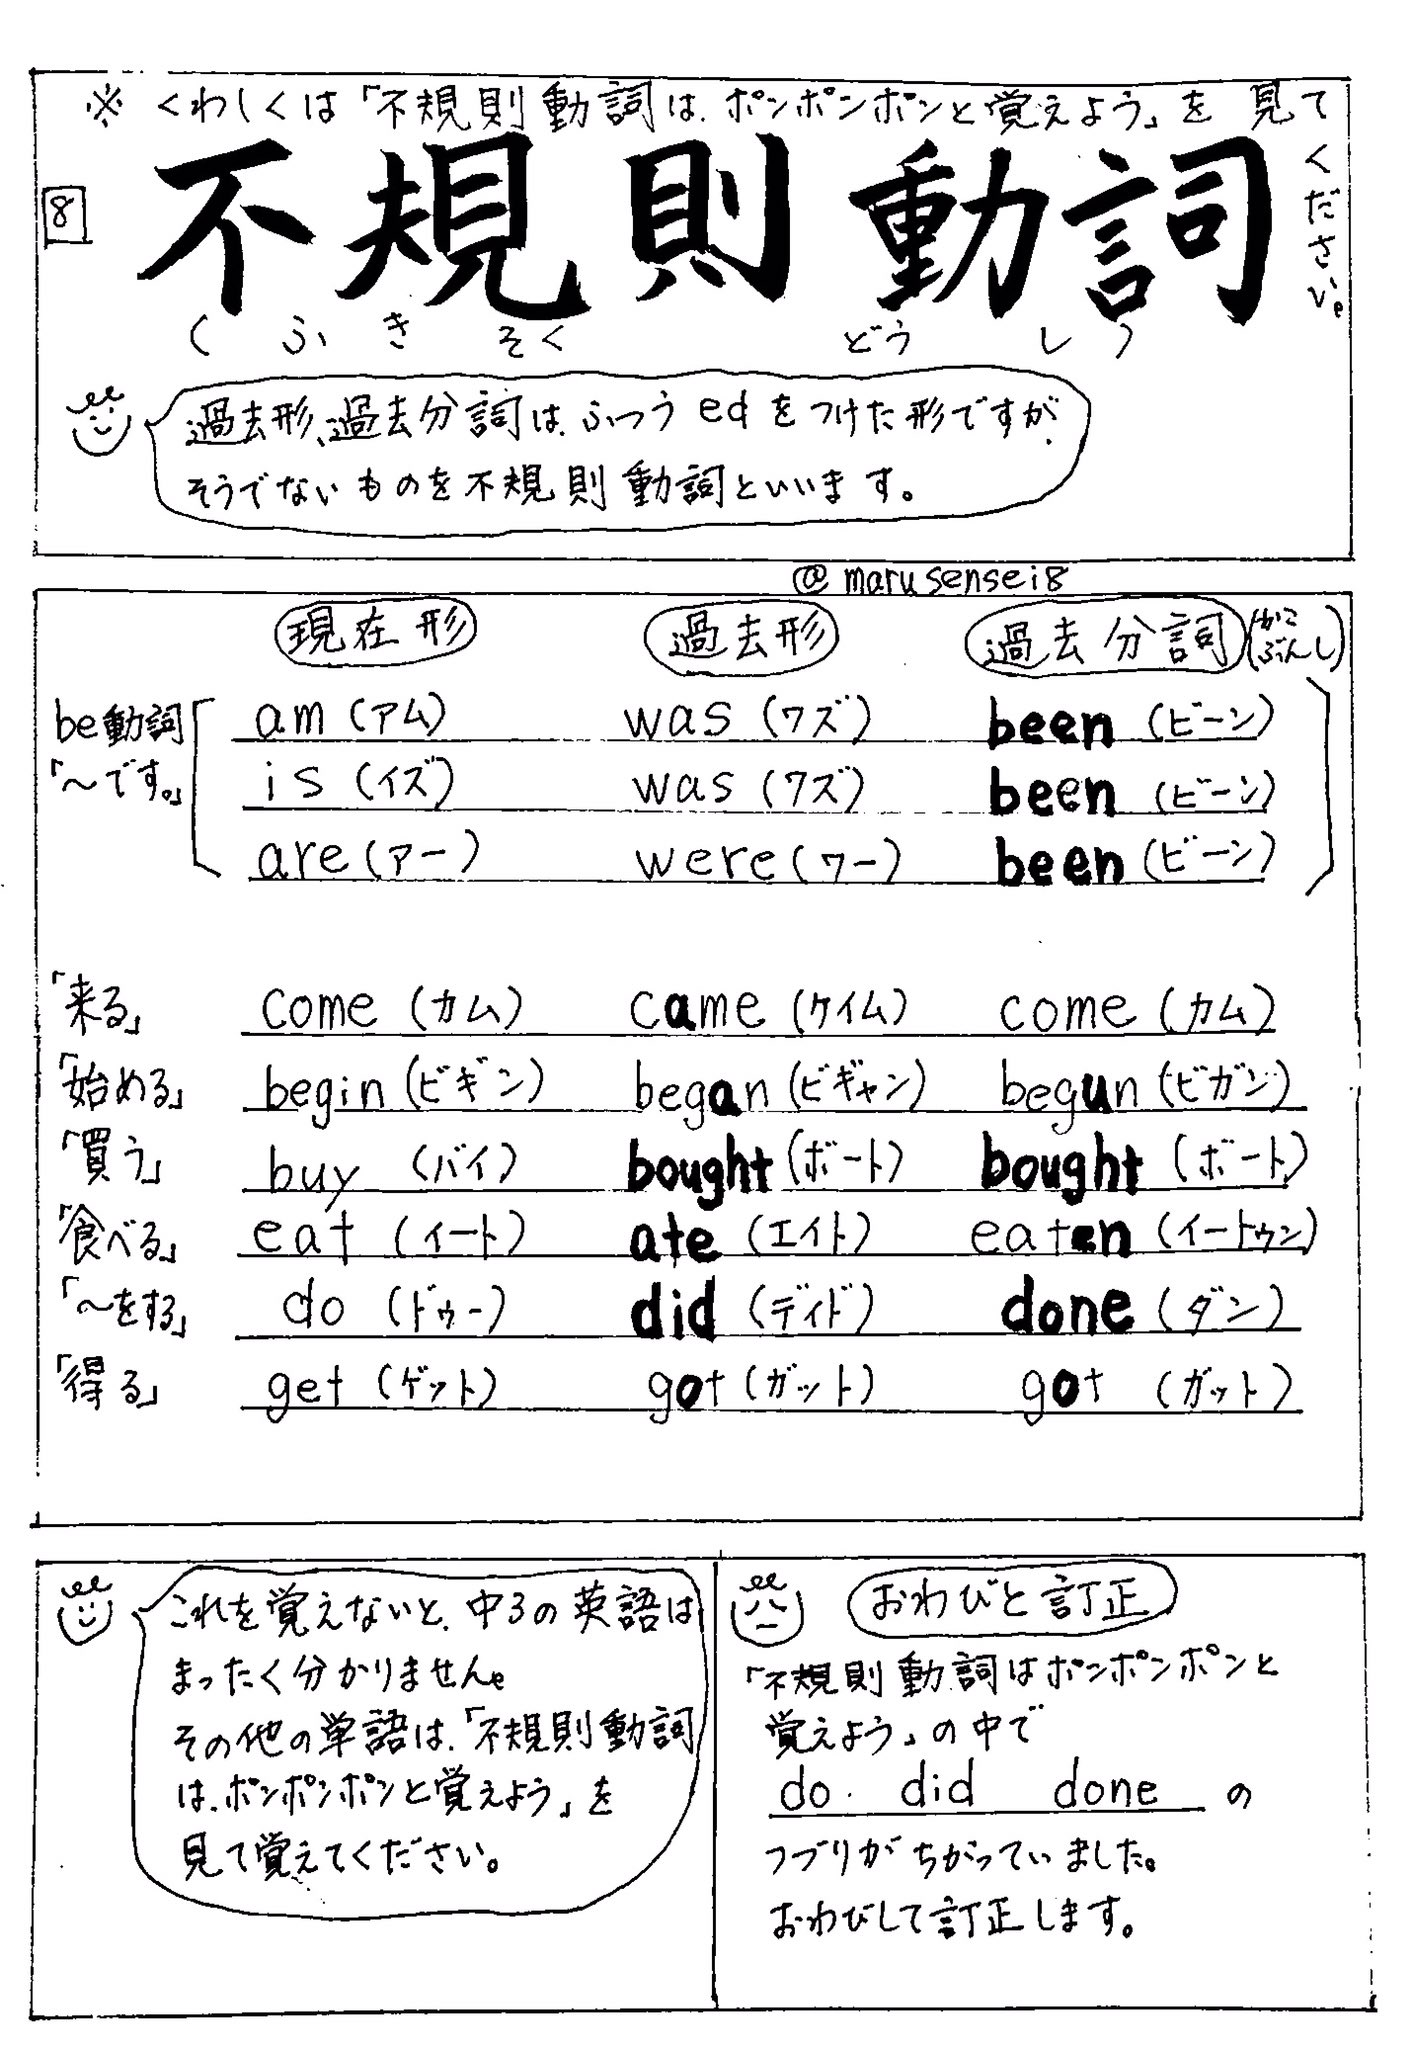 ※ くわしくは「不規則動詞は、ポンポンポンと覚えよう」を見てください。
8
不規則動詞
(ふきそくどうし)
過去形、過去分詞は、ふつうedをつけた形ですが、
そうでないものを不規則動詞といいます。
@marusensei8
現在形 過去形 過去分詞(かこぶんし)
be動詞「〜です。」
am(アム) was(ワズ) been(ビーン)
is(イズ) was(ワズ) been(ビーン)
are(アー) were(ワー) been(ビーン)
「来る」 come(カム) came(ケイム) come(カム)
「始める」 begin(ビギン) began(ビギャン) begun(ビガン)
「買う」 buy(バイ) bought(ボート) bought(ボート)
「食べる」 eat(イート) ate(エイト) eaten(イートゥン)
「〜をする」 do(ドゥー) did(ディド) done(ダン)
「得る」 get(ゲット) got(ガット) got(ガット)
これを覚えないと、中3の英語は
まったく分かりません。
その他の単語は、「不規則動詞
は、ポンポンポンと覚えよう」を
見て覚えてください。
おわびと訂正
「不規則動詞はポンポンポンと
覚えよう」の中で
do did done の
つづりがちがっていました。
おわびして訂正します。